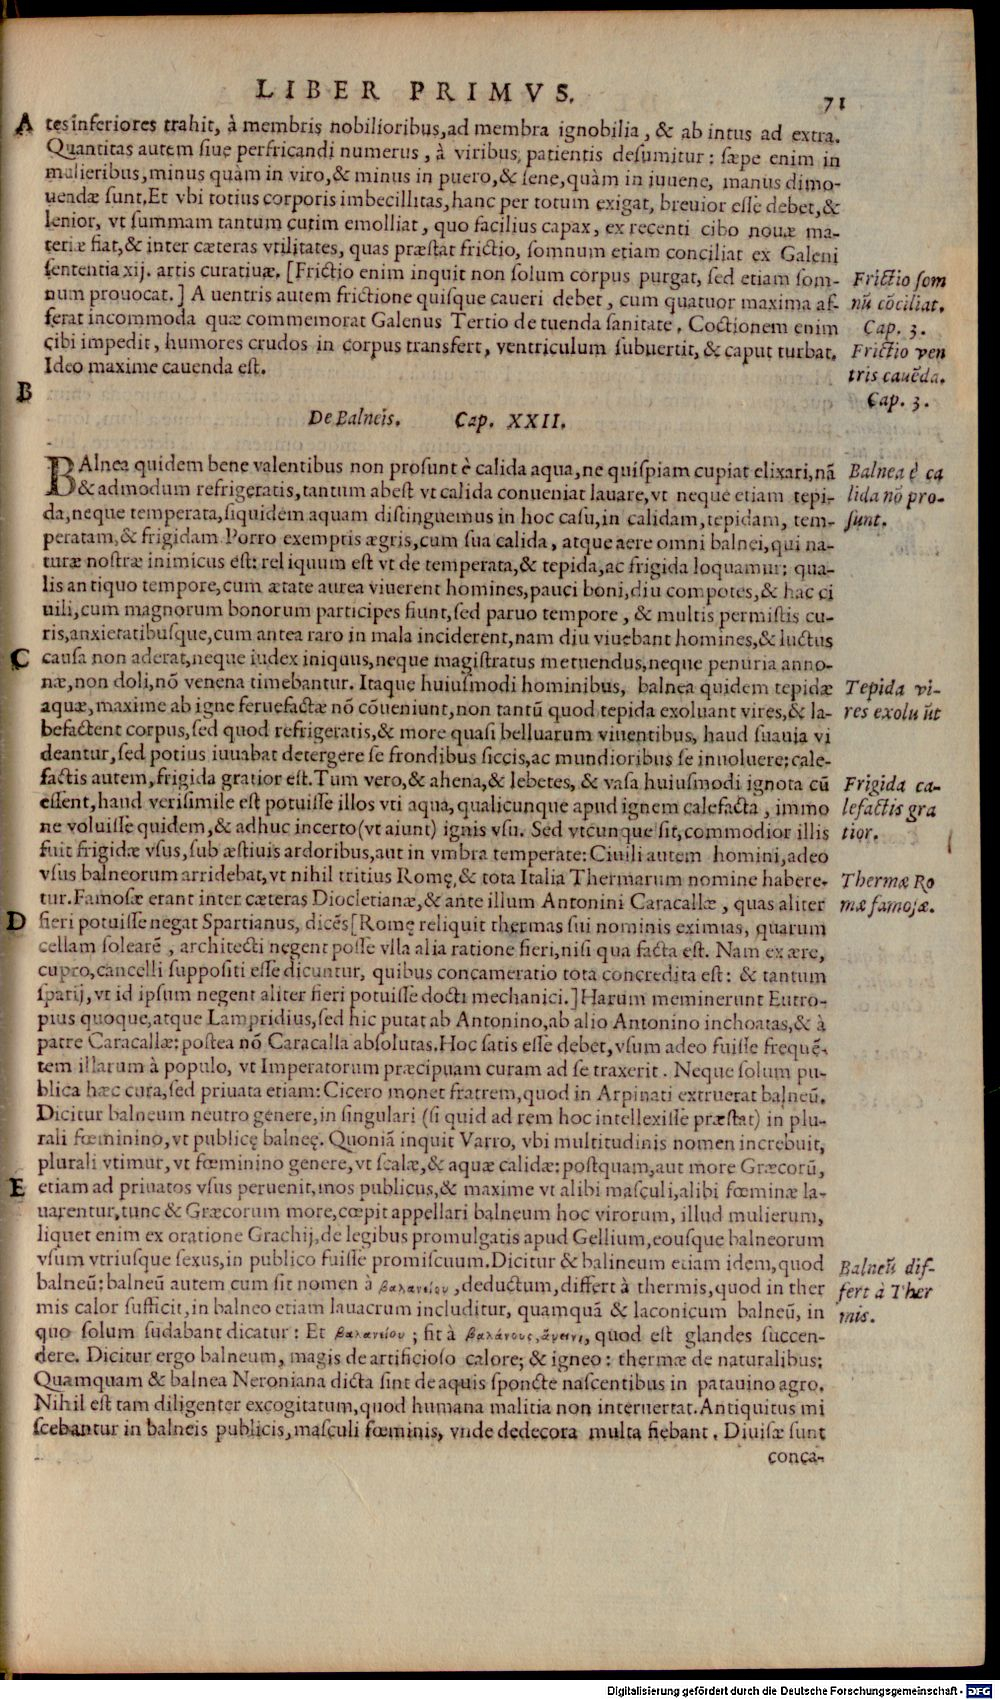 LIBER PRIMVS.
71
A
tes inferiores trahit, à membris nobilioribus, ad membra ignobilia, & ab intus ad extra.
Quantitas autem siue perfricandi numerus, à viribus patientis desumitur: sæpe enim in
mulieribus, minus quàm in viro, & minus in puero, & sene, quàm in iuuene, manus dimo-
uendæ sunt. Et vbi totius corporis imbecillitas, hanc per totum exigat, breuior esse debet, &
lenior, vt summam tantum cutim emolliat, quo facilius capax, ex recenti cibo nouæ ma-
teriæ fiat, & inter cæteras vtilitates, quas præstat frictio, somnum etiam conciliat ex Galeni
sententia xij. artis curatiuæ. [Frictio enim inquit non solum corpus purgat, sed etiam som-
num prouocat.] A uentris autem frictione quisque caueri debet, cum quatuor maxima af-
ferat incommoda quæ commemorat Galenus Tertio de tuenda sanitate. Coctionem enim
cibi impedit, humores crudos in corpus transfert, ventriculum subuertit, & caput turbat.
Ideo maxime cauenda est.
Frictio som
nũ cõciliat.
Cap. 3.
Frictio ven
tris cauẽda.
Cap. 3.
B
De Balneis. Cap. XXII.
BAlnea quidem bene valentibus non prosunt è calida aqua, ne quispiam cupiat elixari, nã
& admodum refrigeratis, tantum abest vt calida conueniat lauare, vt neque etiam tepi-
da, neque temperata, siquidem aquam distinguemus in hoc casu, in calidam, tepidam, tem-
peratam, & frigidam. Porro exemptis ægris, cum sua calida, atque aere omni balnei, qui na-
turæ nostræ inimicus est: reliquum est vt de temperata, & tepida, ac frigida loquamur: qua-
lis antiquo tempore, cum ætate aurea viuerent homines, pauci boni, diu compotes, & hac ci
uili, cum magnorum bonorum participes fiunt, sed paruo tempore, & multis permistis cu-
ris, anxietatibusque, cum antea raro in mala inciderent, nam diu viuebant homines, & luctus
causa non aderat, neque iudex iniquus, neque magistratus metuendus, neque penuria anno-
næ, non doli, nõ venena timebantur. Itaque huiusmodi hominibus, balnea quidem tepidæ
aquæ, maxime ab igne feruefactæ nõ cõueniunt, non tantũ quod tepida exoluant vires, & la-
befactent corpus, sed quod refrigeratis, & more quasi belluarum viuentibus, haud suauia vi
deantur, sed potius iuuabat detergere se frondibus siccis, ac mundioribus se inuoluere: cale-
factis autem, frigida gratior est. Tum vero, & ahena, & lebetes, & vasa huiusmodi ignota cũ
essent, haud verisimile est potuisse illos vti aqua, qualicunque apud ignem calefacta, immo
ne voluisse quidem, & adhuc incerto (vt aiunt) ignis vsu. Sed vtcunque sit, commodior illis
fuit frigidæ vsus, sub æstiuis ardoribus, aut in vmbra temperate: Ciuili autem homini, adeo
vsus balneorum arridebat, vt nihil tritius Romę, & tota Italia Thermarum nomine habere-
tur. Famosæ erant inter cæteras Diocletianæ, & ante illum Antonini Caracallæ, quas aliter
fieri potuisse negat Spartianus, dicẽs [Romę reliquit thermas sui nominis eximias, quarum
cellam solearẽ, architecti negent posse vlla alia ratione fieri, nisi qua facta est. Nam ex ære,
cupro, cancelli suppositi esse dicuntur, quibus concameratio tota concredita est: & tantum
spatij, vt id ipsum negent aliter fieri potuisse docti mechanici.] Harum meminerunt Eutro-
pius quoque, atque Lampridius, sed hic putat ab Antonino, ab alio Antonino inchoatas, & à
patre Caracallæ: postea nõ Caracalla absolutas. Hoc satis esse debet, vsum adeo fuisse frequẽ-
tem illarum à populo, vt Imperatorum præcipuam curam ad se traxerit. Neque solum pu-
blica hæc cura, sed priuata etiam: Cicero monet fratrem, quod in Arpinati extruerat balneũ.
Dicitur balneum neutro genere, in singulari (si quid ad rem hoc intellexisse præstat) in plu-
rali fœminino, vt publicę balneę. Quoniã inquit Varro, vbi multitudinis nomen increbuit,
plurali vtimur, vt fœminino genere, vt scalæ, & aquæ calidæ: postquam, aut more Græcorũ,
etiam ad priuatos vsus peruenit, mos publicus, & maxime vt alibi masculi, alibi fœminæ la-
uarentur, tunc & Græcorum more, cœpit appellari balneum hoc virorum, illud mulierum,
liquet enim ex oratione Grachij, de legibus promulgatis apud Gellium, eousque balneorum
vsum vtriusque sexus, in publico fuisse promiscuum. Dicitur & balineum etiam idem, quod
balneũ: balneũ autem cum sit nomen à βαλανείου, deductum, differt à thermis, quod in ther
mis calor sufficit, in balneo etiam lauacrum includitur, quamquã & laconicum balneũ, in
quo solum sudabant dicatur: Et βαλανείου; fit à βαλάνους, quod est glandes succen-
dere. Dicitur ergo balneum, magis de artificioso calore; & igneo: thermæ de naturalibus:
Quamquam & balnea Neroniana dicta sint de aquis sponcte nascentibus in patauino agro.
Nihil est tam diligenter excogitatum, quod humana malitia non interuertat. Antiquitus mi
scebantur in balneis publicis, masculi fœminis, vnde dedecora multa fiebant. Diuisæ sunt
conca-
Balnea è ca
lida nõ pro-
sunt.
C
Tepida vi-
res exoluũt
Frigida ca-
lefactis gra
tior.
Thermæ Ro
mæ famosæ.
D
E
Balneũ dif-
fert à Ther
mis.
Digitalisierung gefördert durch die Deutsche Forschungsgemeinschaft - DFG